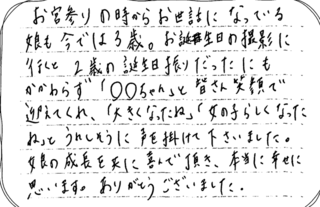 お宮参りの時からお世話になっている
娘も今では3歳。お誕生日の撮影に
行くと2歳の誕生日振りだったにも
かかわらず「○○ちゃん」と皆さん笑顔で
迎えてくれ、「大きくなったね」「女の子らしくなった
ね」とうれしそうに声を掛けて下さいました。
娘の成長を共に喜んで頂き、本当に幸せに
思います。ありがとうございました。